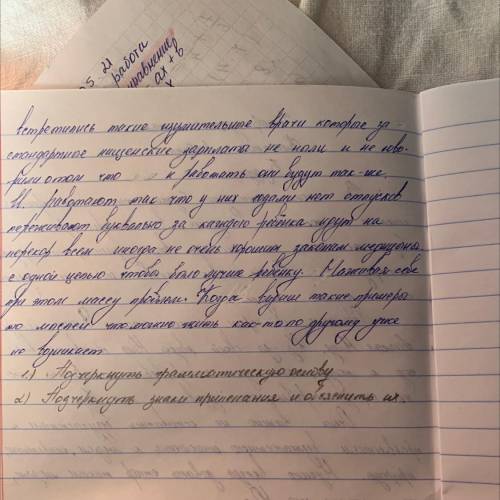 5 21
работа
уравнение
ax + b
x
встретились такие изумительные врачи которые за
стандартные нищенские зарплаты не ныли и не гово-
рили о том что и работать они будут так-же.
И работают так что у них годами нет отпусков
переживают буквально за каждого ребёнка идут на
перекор всем иногда не очень хорошим законам медицины
с одной целью чтобы было лучше ребёнку. Наживая себе
при этом массу проблем. Когда видиш такие примеры
то мыслей что можно жить как-то по другому уже
не возникает
1.) Подчеркнуть грамматическую основу
2) Подчеркнуть знаки препенания и обяснить их